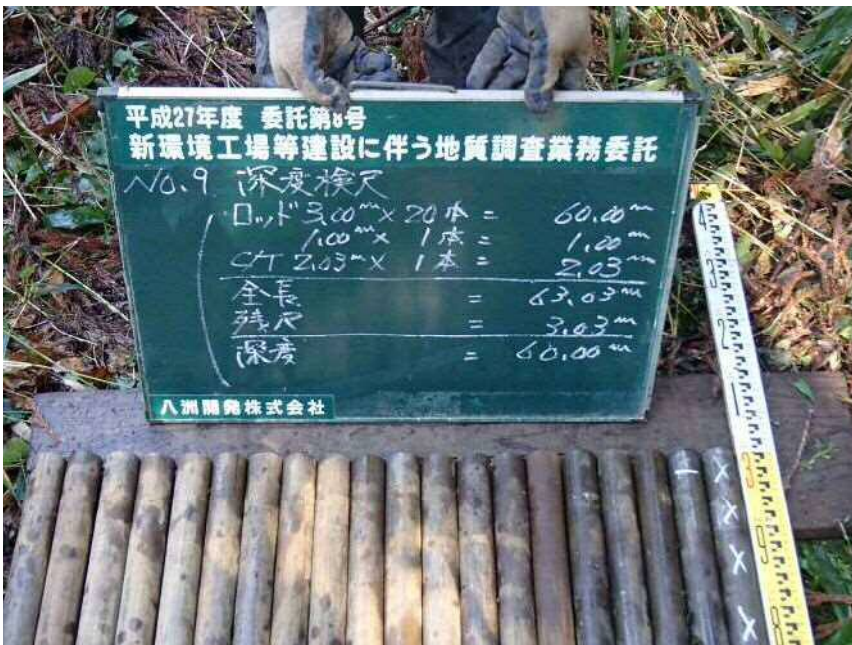 平成27年度 委託第8号
新環境工場等建設に伴う地質調査業務委託
No.9 深度検尺
ロッド 3.00m × 20本 = 60.00m
1.00m × 1本 = 1.00m
C/T 2.03m × 1本 = 2.03m
全長 = 63.03m
残尺 = 3.03m
深度 = 60.00m
八洲開発株式会社
4
3
2
1
3
9
8